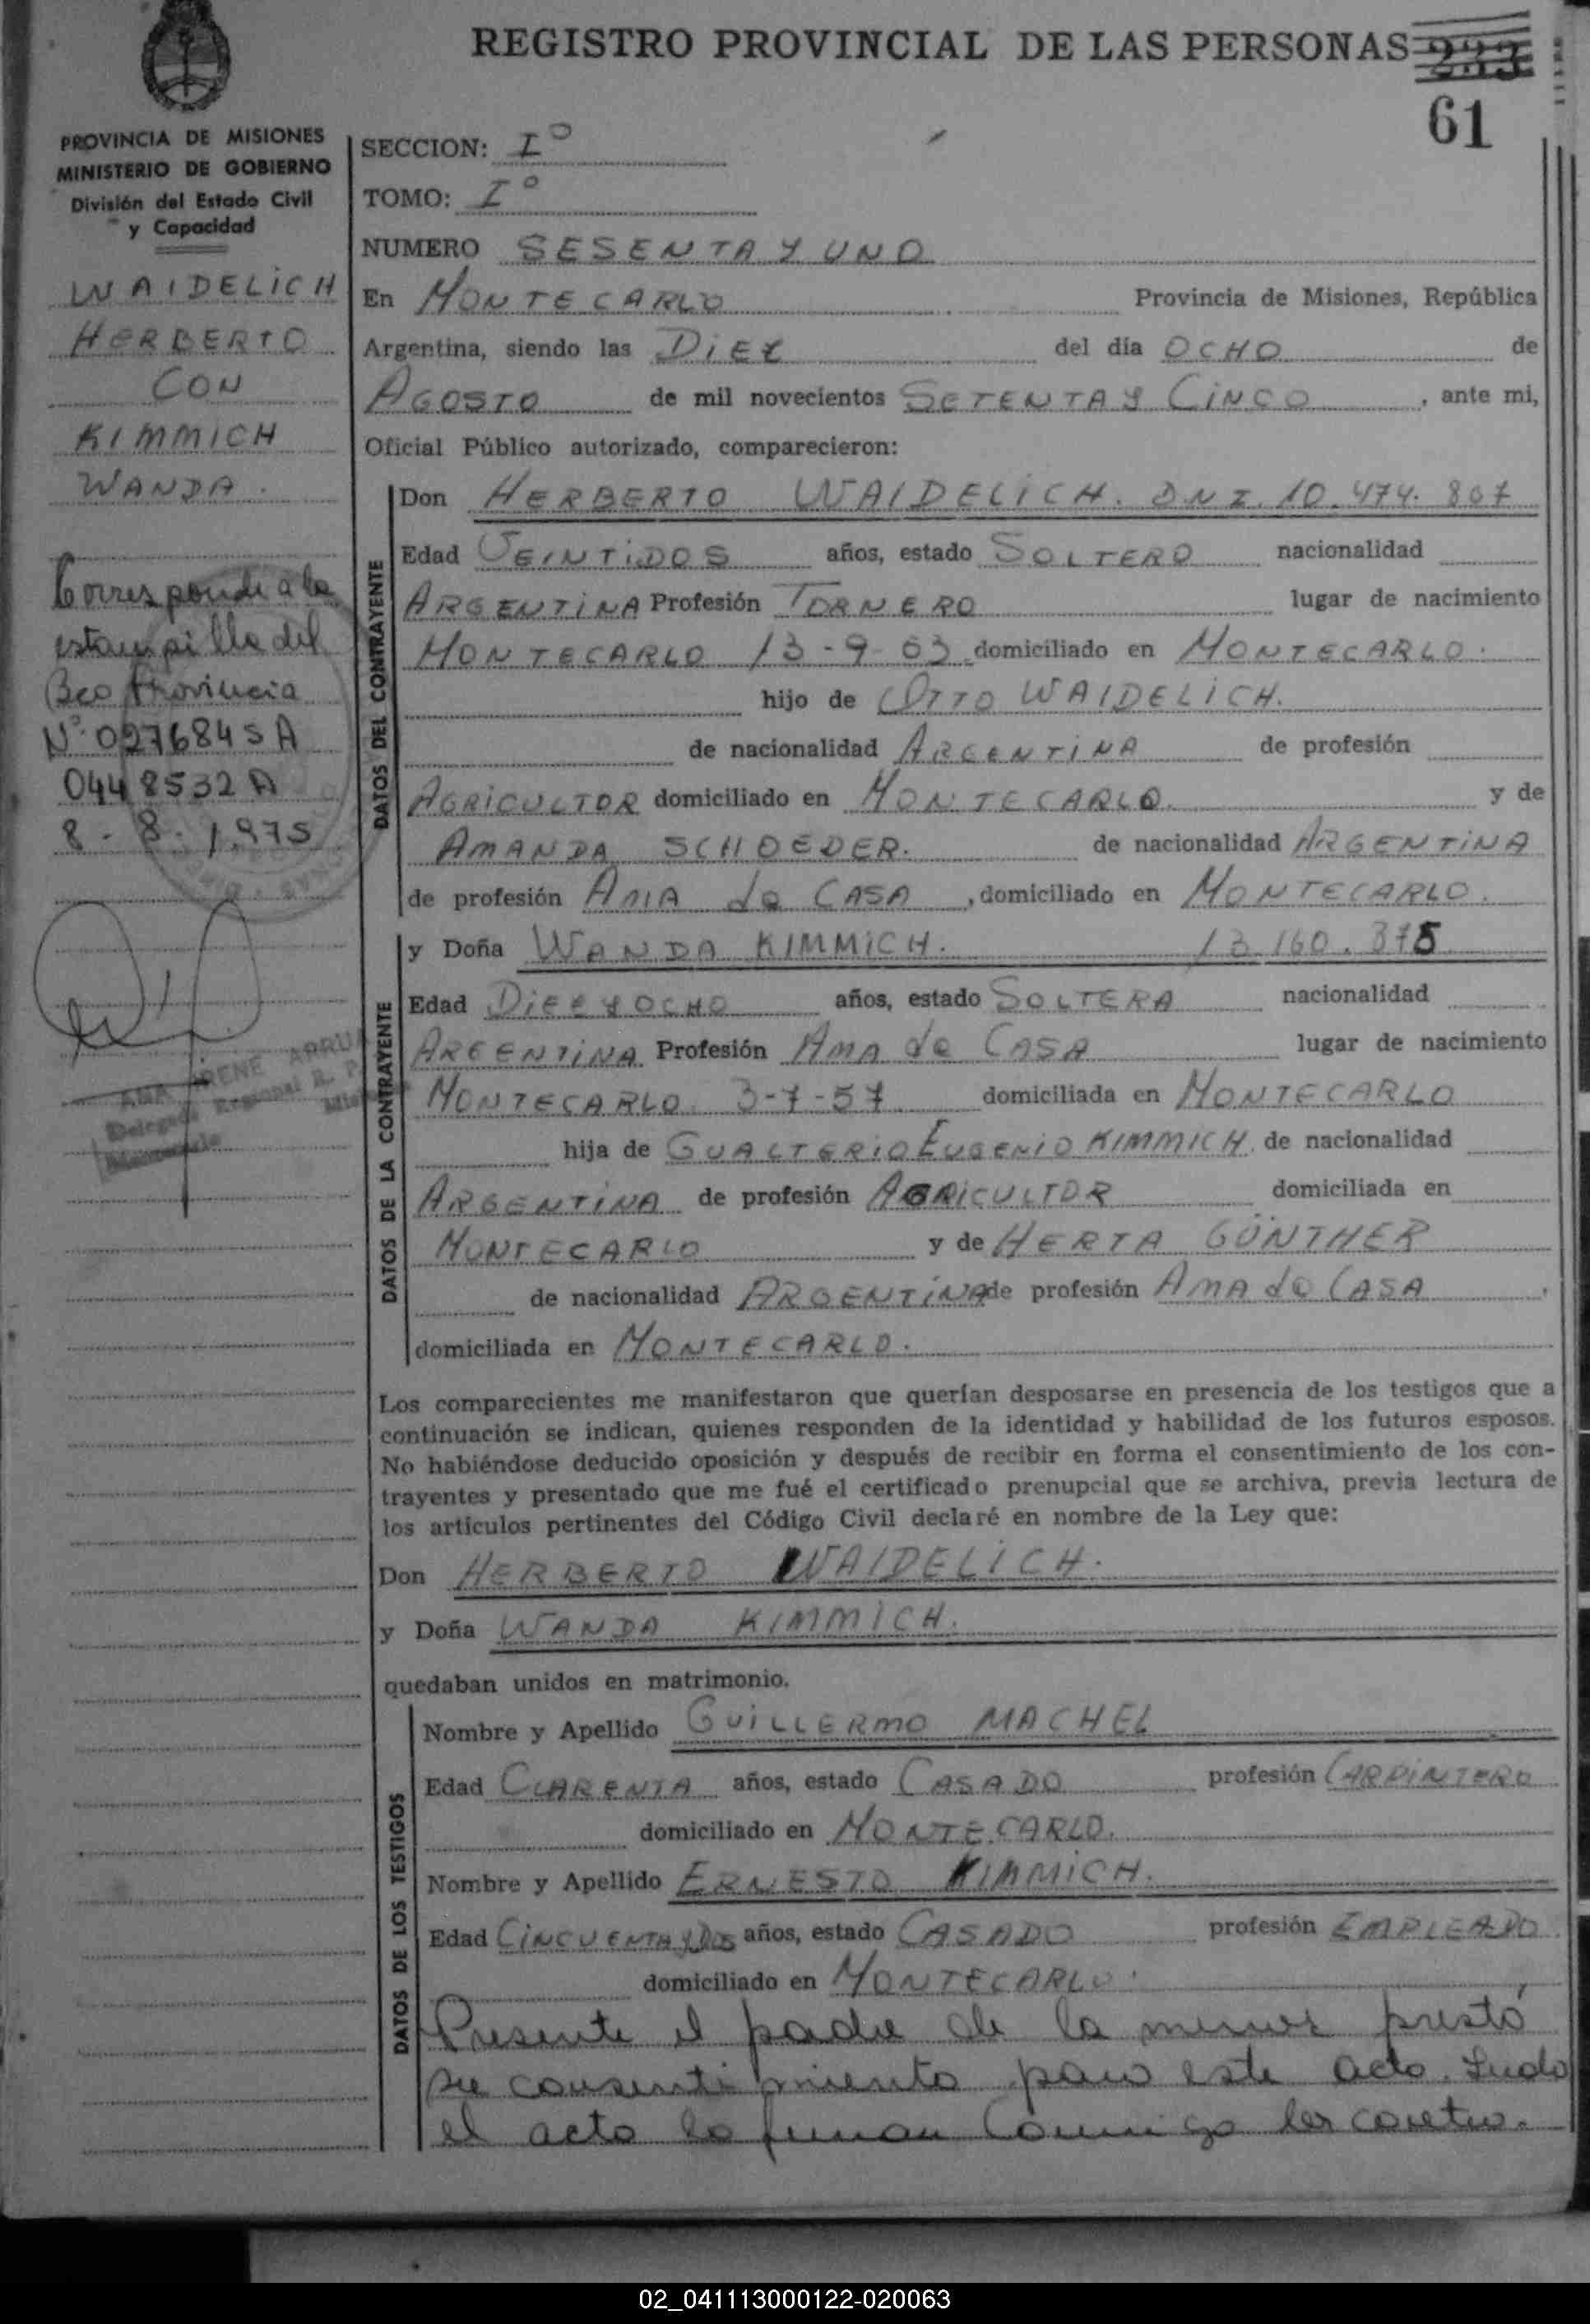 REGISTRO PROVINCIAL DE LAS PERSONAS 233
61
PROVINCIA DE MISIONES
MINISTERIO DE GOBIERNO
División del Estado Civil
y Capacidad
WAIDELICH
HERBERTO
CON
KIMMICH
WANDA.
Corresponde a la
estampilla del
Bco Provincia
Nº 0276845 A
0448532 A
8-8-1.975
ANA IRENE ARRUA
SECCION: Iº
TOMO: Iº
NUMERO SESENTA Y UNO
En MONTECARLO Provincia de Misiones, República
Argentina, siendo las DIEZ del día OCHO de
AGOSTO de mil novecientos SETENTA Y CINCO, ante mi,
Oficial Público autorizado, comparecieron:
DATOS DEL CONTRAYENTE
Don HERBERTO WAIDELICH. DNI. 10.474.807
Edad VEINTIDOS años, estado SOLTERO nacionalidad
ARGENTINA Profesión TORNERO lugar de nacimiento
MONTECARLO 13-9-53 domiciliado en MONTECARLO.
hijo de OTTO WAIDELICH.
de nacionalidad ARGENTINA de profesión
AGRICULTOR domiciliado en MONTECARLO. y de
AMANDA SCHOEDER. de nacionalidad ARGENTINA
de profesión AMA de CASA, domiciliado en MONTECARLO.
DATOS DE LA CONTRAYENTE
y Doña WANDA KIMMICH. 13.160.375
Edad DIEZ Y OCHO años, estado SOLTERA nacionalidad
ARGENTINA Profesión AMA de CASA lugar de nacimiento
MONTECARLO 3-7-57 domiciliada en MONTECARLO
hija de GUALTERIO EUGENIO KIMMICH. de nacionalidad
ARGENTINA de profesión AGRICULTOR domiciliada en
MONTECARLO y de HERTA GÜNTHER
de nacionalidad ARGENTINA de profesión AMA de CASA,
domiciliada en MONTECARLO.
Los comparecientes me manifestaron que querían desposarse en presencia de los testigos que a
continuación se indican, quienes responden de la identidad y habilidad de los futuros esposos.
No habiéndose deducido oposición y después de recibir en forma el consentimiento de los con-
trayentes y presentado que me fué el certificado prenupcial que se archiva, previa lectura de
los artículos pertinentes del Código Civil declaré en nombre de la Ley que:
Don HERBERTO WAIDELICH.
y Doña WANDA KIMMICH.
quedaban unidos en matrimonio.
DATOS DE LOS TESTIGOS
Nombre y Apellido GUILLERMO MACHEL
Edad CUARENTA años, estado CASADO profesión CARPINTERO
domiciliado en MONTECARLO.
Nombre y Apellido ERNESTO KIMMICH.
Edad CINCUENTA Y DOS años, estado CASADO profesión EMPLEADO
domiciliado en MONTECARLO.
Presente el padre de la menor prestó
su consentimiento para este acto. Leido
el acto lo firman Conmigo los contra.
02_041113000122-020063